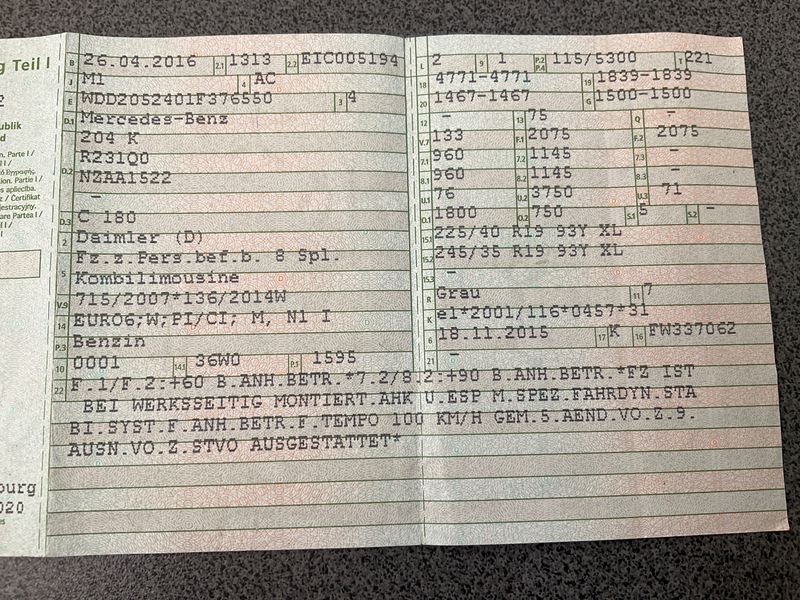 g Teil I
B 26.04.2016 2.1 1313 2.2 EIC005194
J M1 4 AC
E WDD2052401F376550 3 4
D.1 Mercedes-Benz
204 K
R231Q0
D.2 NZAA1522
-
D.3 C 180
2 Daimler (D)
Fz.z.Pers.bef.b. 8 Spl.
5 Kombilimousine
V.9 715/2007*136/2014W
14 EURO6;W;PI/CI; M, N1 I
P.3 Benzin
10 0001 14.1 36W0 P.1 1595
L 2 9 1 P.2 P.4 115/5300 T 221
18 4771-4771 19 1839-1839
20 1467-1467 G 1500-1500
12 - 13 75 Q -
V.7 133 F.1 2075 F.2 2075
7.1 960 7.2 1145 7.3 -
8.1 960 8.2 1145 8.3 -
U.1 76 U.2 3750 U.3 71
O.1 1800 O.2 750 S.1 5 S.2 -
15.1 225/40 R19 93Y XL
15.2 245/35 R19 93Y XL
15.3 -
R Grau 11 7
K e1*2001/116*0457*31
6 18.11.2015 17 K 16 FW337062
21 -
22 F.1/F.2:+60 B.ANH.BETR.*7.2/8.2:+90 B.ANH.BETR.*FZ IST
BEI WERKSSEITIG MONTIERT.AHK U.ESP M.SPEZ.FAHRDYN.STA
BI.SYST.F.ANH.BETR.F.TEMPO 100 KM/H GEM.5.AEND.VO.Z.9.
AUSN.VO.Z.STVO AUSGESTATTET*
publik
d
on. Parte I /
tion. Partie I /
s apliecība.
z / Certifikat
jestracyjny,
are Partea I /
burg
020
es